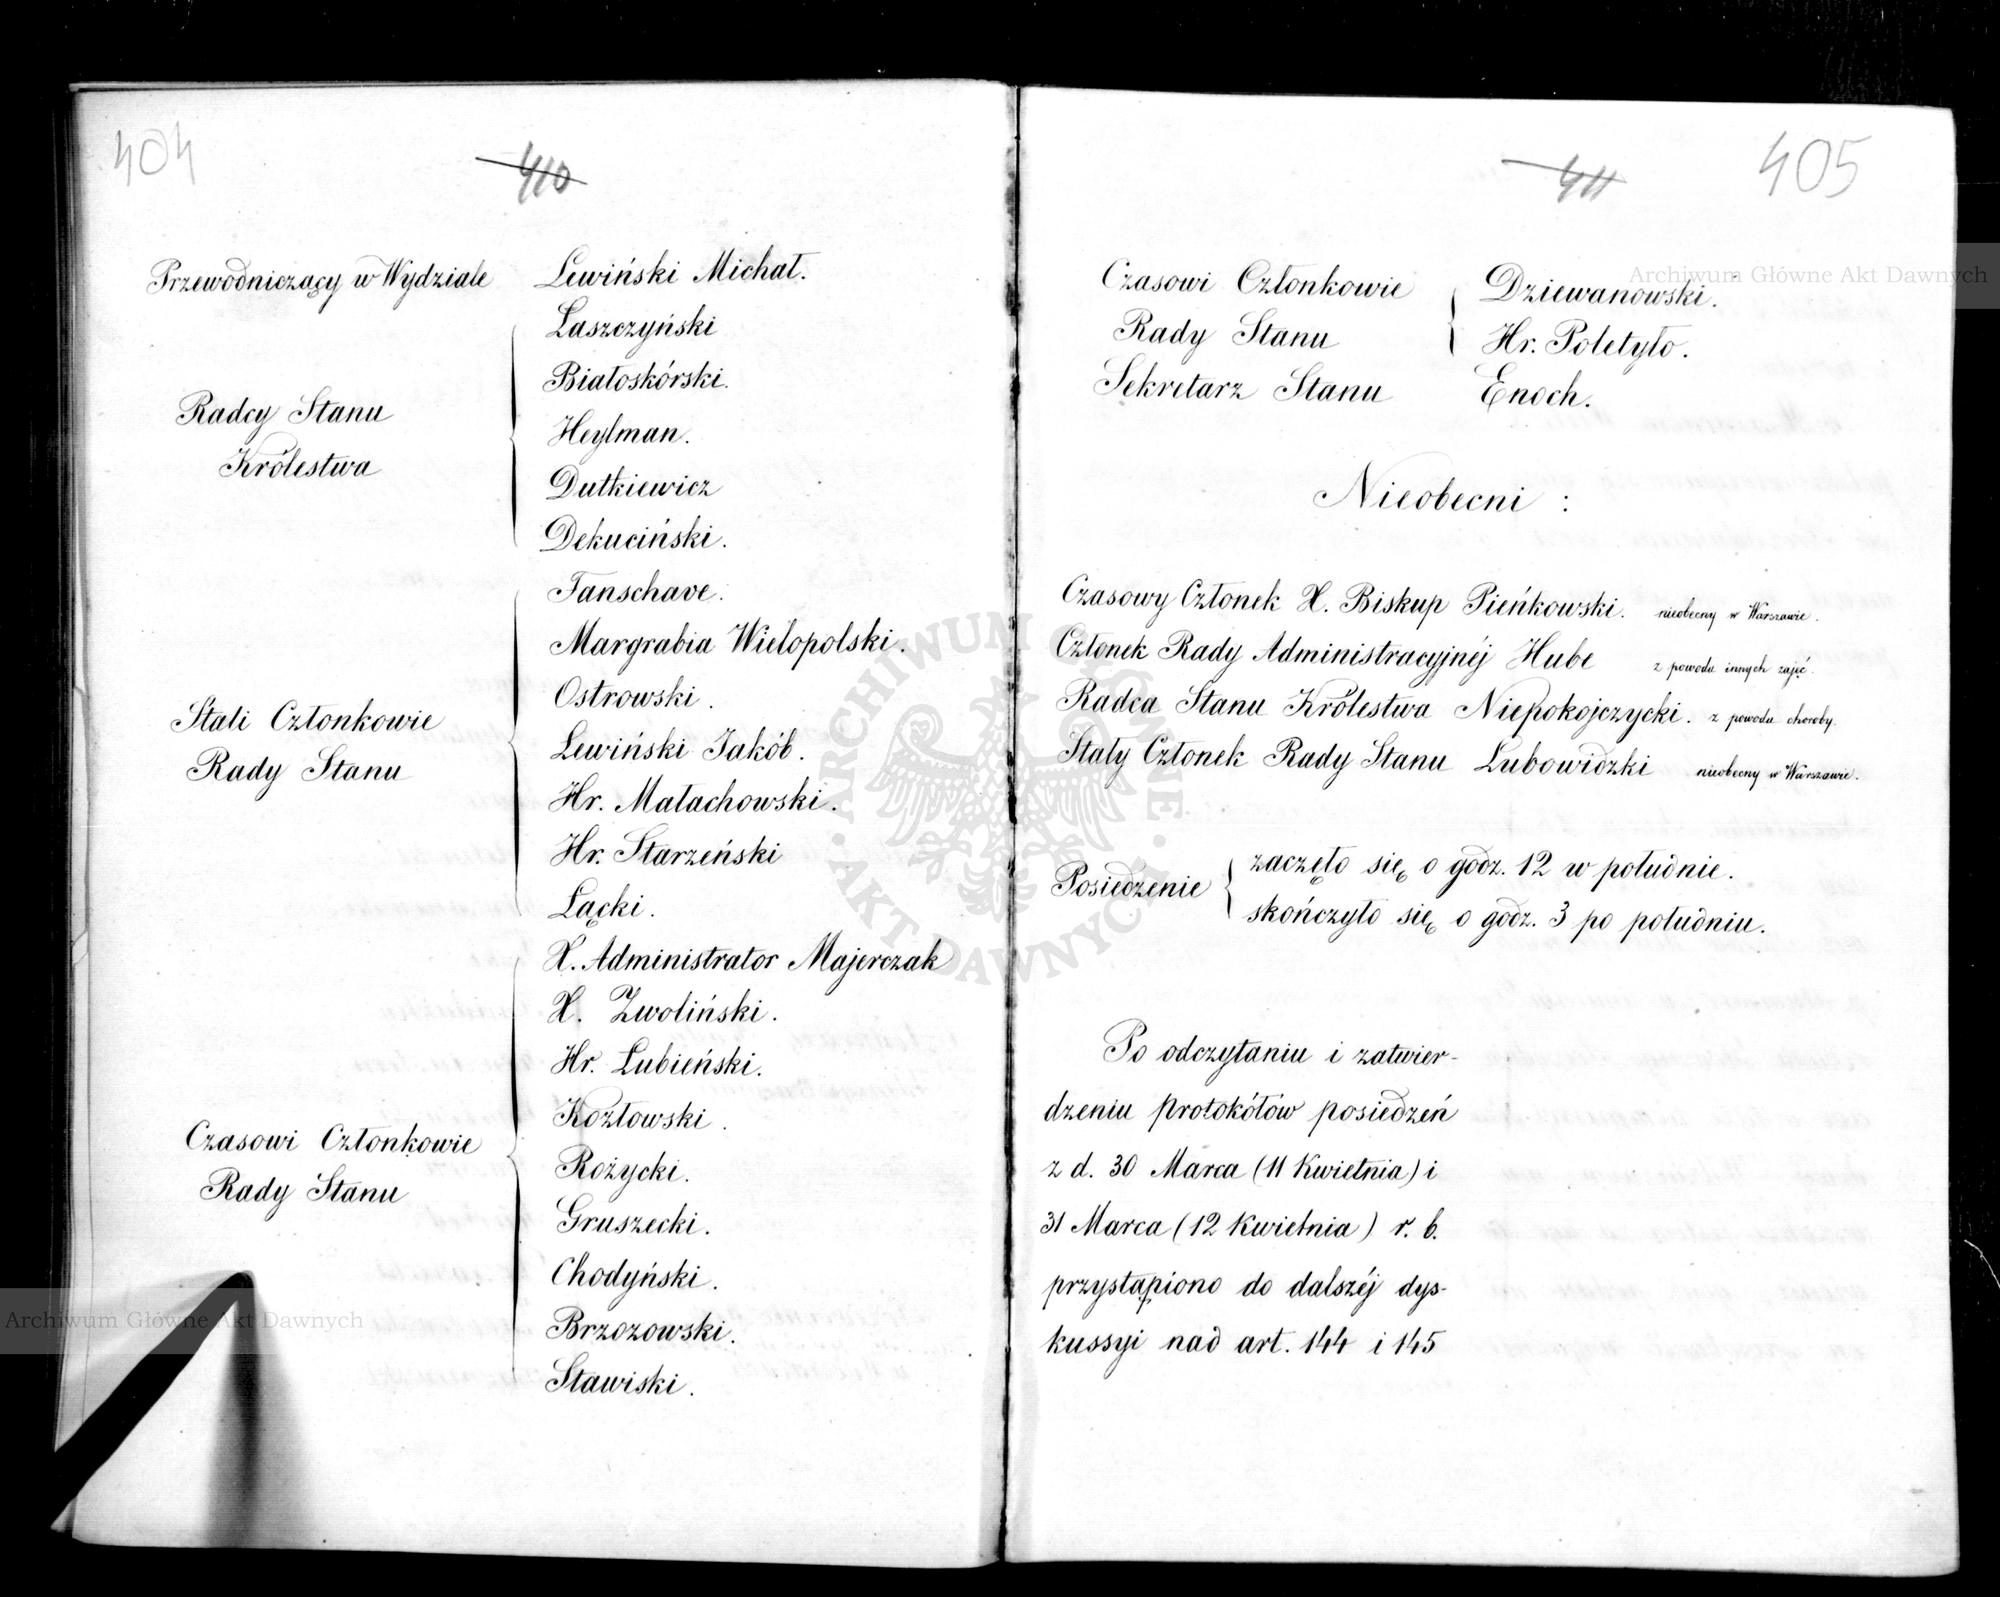 404
410
Przewodniczący w Wydziale Lewiński Michał.
Radcy Stanu
Królestwa
Łaszczyński
Białoskórski.
Heylman.
Dutkiewicz
Dekuciński.
Stali Członkowie
Rady Stanu
Fanschave.
Margrabia Wielopolski.
Ostrowski.
Lewiński Jakób.
Hr. Małachowski.
Hr. Starzeński
Łącki.
Czasowi Członkowie
Rady Stanu
X. Administrator Majerczak
X. Zwoliński.
Hr. Łubieński.
Kozłowski.
Rożycki.
Gruszecki.
Chodyński.
Brzozowski.
Stawiski.
411
405
Czasowi Członkowie
Rady Stanu
Dziewanowski.
Hr. Poletyło.
Sekretarz Stanu Enoch.
Nieobecni :
Czasowy Członek X. Biskup Pieńkowski. nieobecny w Warszawie.
Członek Rady Administracyjnéj Hube z powodu innych zajęć.
Radca Stanu Królestwa Niepokojczycki. z powodu choroby.
Stały Członek Rady Stanu Lubowidzki nieobecny w Warszawie.
Posiedzenie
zaczęło się o godz. 12 w południe.
skończyło się o godz. 3 po południu.
Po odczytaniu i zatwier-
dzeniu protokółów posiedzeń
z d. 30 Marca (11 Kwietnia) i
31 Marca (12 Kwietnia) r. b.
przystąpiono do dalszéj dys-
kussyi nad art. 144 i 145
Archiwum Główne Akt Dawnych
Archiwum Główne Akt Dawnych
ARCHIWUM GŁÓWNE AKT DAWNYCH